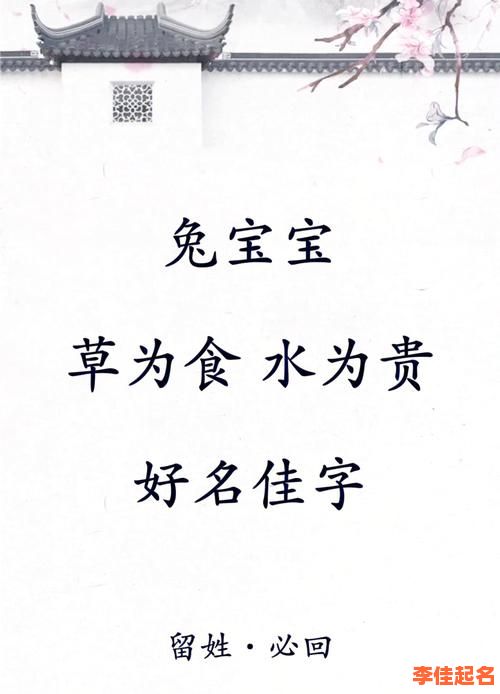 兔宝宝
草为食 水为贵
好名佳字
留姓·必回
李佳起名